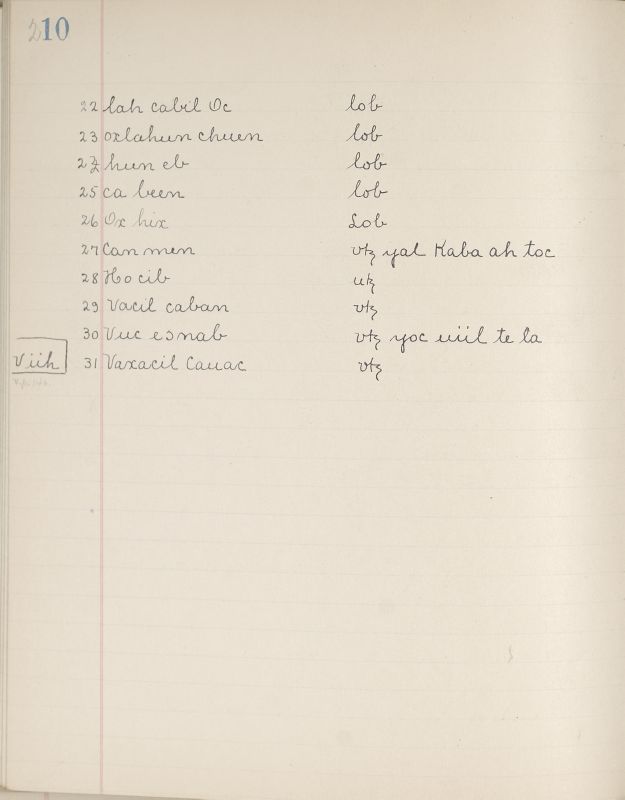 210
22 lah cabil Oc lob
23 oxlahun chuen lob
24 hun eb lob
25 ca been lob
26 Ox hix Lob
27 Can men vtz yal Kaba ah toc
28 Ho cib utz
29 Vacil caban vtz
30 Vuc esnab vtz yoc uiil te la
Viih 31 Vaxacil Cauac vtz